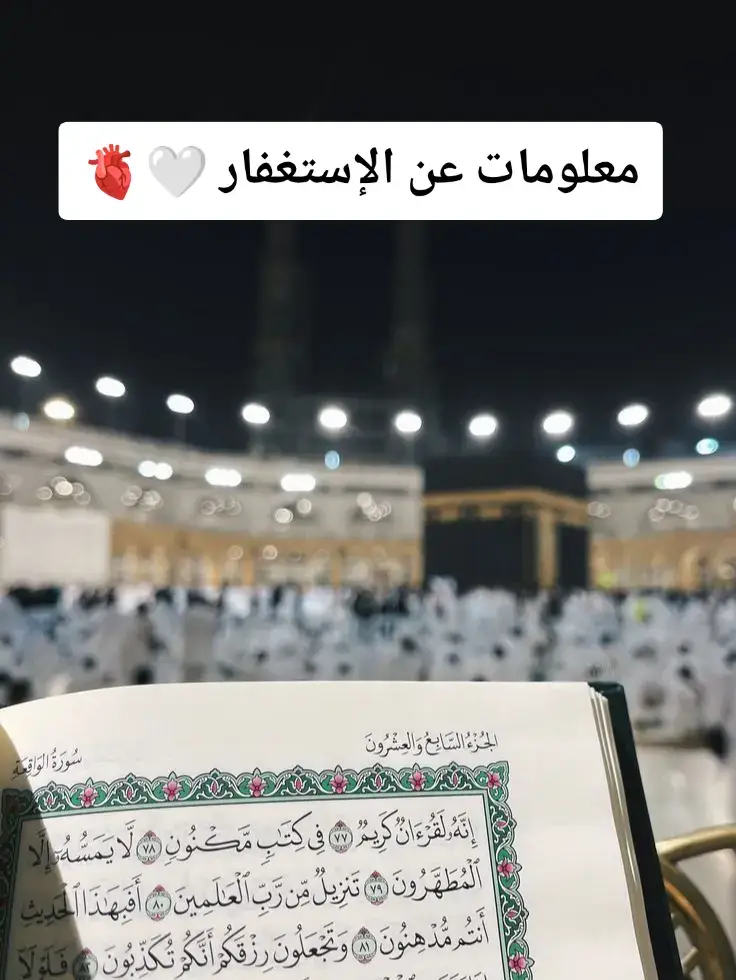 معلومات عن الإستغفار 🤍 🫀
الجُزْءُ السَّابِعُ وَالعِشْرُونَ
سُورَةُ الوَاقِعَةِ
إِنَّهُۥ لَقُرْءَانٌ كَرِيمٌ ٧٧ فِى كِتَـٰبٍ مَّكْنُونٍ ٧٨ لَّا يَمَسُّهُۥٓ إِلَّا
ٱلْمُطَهَّرُونَ ٧٩ تَنزِيلٌ مِّن رَّبِّ ٱلْعَـٰلَمِينَ ٨٠ أَفَبِهَـٰذَا ٱلْحَدِيثِ
أَنتُم مُّدْهِنُونَ ٨١ وَتَجْعَلُونَ رِزْقَكُمْ أَنَّكُمْ تُكَذِّبُونَ ٨٢ فَلَوْلَآ